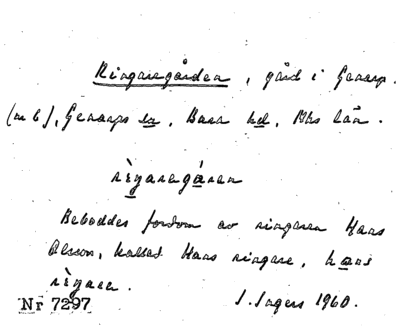 Ringaregården, gård i Genarp.
(n 6), Genarps sn, Bara hd, Mhs län.
rìŋaregåren
Beboddes fordom av ringaren Hans
Olsson, kallad Hans ringare, hans
rìŋare.
Nr 7297 J. Ingers 1960.